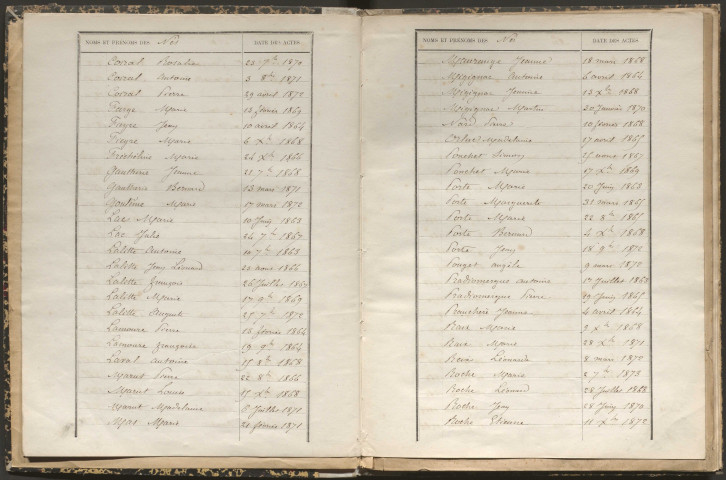 NOMS ET PRÉNOMS DES Nés DATE DES ACTES
Corral Rosalie 23 7bre 1870
Corral Antoine 3 8bre 1871
Corral Pierre 29 avril 1872
Farge Marie 12 février 1869
Freyre Jean 10 avril 1864
Freyre Marie 6 Xbre 1868
Marie 24 Xbre 1866
Gauthier Jeanne 22 7bre 1868
Gautherie Bernard 13 mars 1871
Marie 17 mars 1872
Lac Marie 10 Juin 1863
Lac Jules 24 7bre 1867
Lalette Antoine 10 7bre 1863
Lalette Jean Léonard 20 août 1866
Lalette François 26 Juillet 1867
Lalette Marie 17 9bre 1869
Lalette 25 7bre 1872
Lamoure Pierre 13 février 1864
Lamoure Françoise 19 9bre 1864
Laval Antoine 15 8bre 1868
Marut Pierre 22 8bre 1866
Marut Louis 15 Xbre 1868
Marut Madelaine 8 Juillet 1871
Mas Marie 21 février 1871
NOMS ET PRÉNOMS DES Nés DATE DES ACTES
Jeanne 18 mars 1868
Antoine 6 avril 1864
Jeanne 13 Xbre 1868
Martin 30 Janvier 1870
Pierre 10 février 1868
Madelaine 17 avril 1865
Ponchet Simon 25 mars 1867
Ponchet Marie 17 Xbre 1869
Porte Marie 20 Juin 1863
Porte Marguerite 31 mars 1865
Porte Marie 22 8bre 1865
Porte Bernard 4 Xbre 1868
Porte Jean 18 9bre 1872
Pouget Angèle 9 mars 1872
Pradoumerque Antoine 17 Juillet 1863
Pradoumerque Pierre 29 Juin 1865
Jeanne 4 avril 1864
Marie 9 Xbre 1868
Marie 28 Xbre 1871
Léonarde 8 mars 1872
Roche Marie 2 7bre 1873
Roche Léonard 28 Juillet 1868
Roche Jean 28 Juin 1870
Roche Etienne 11 Xbre 1872